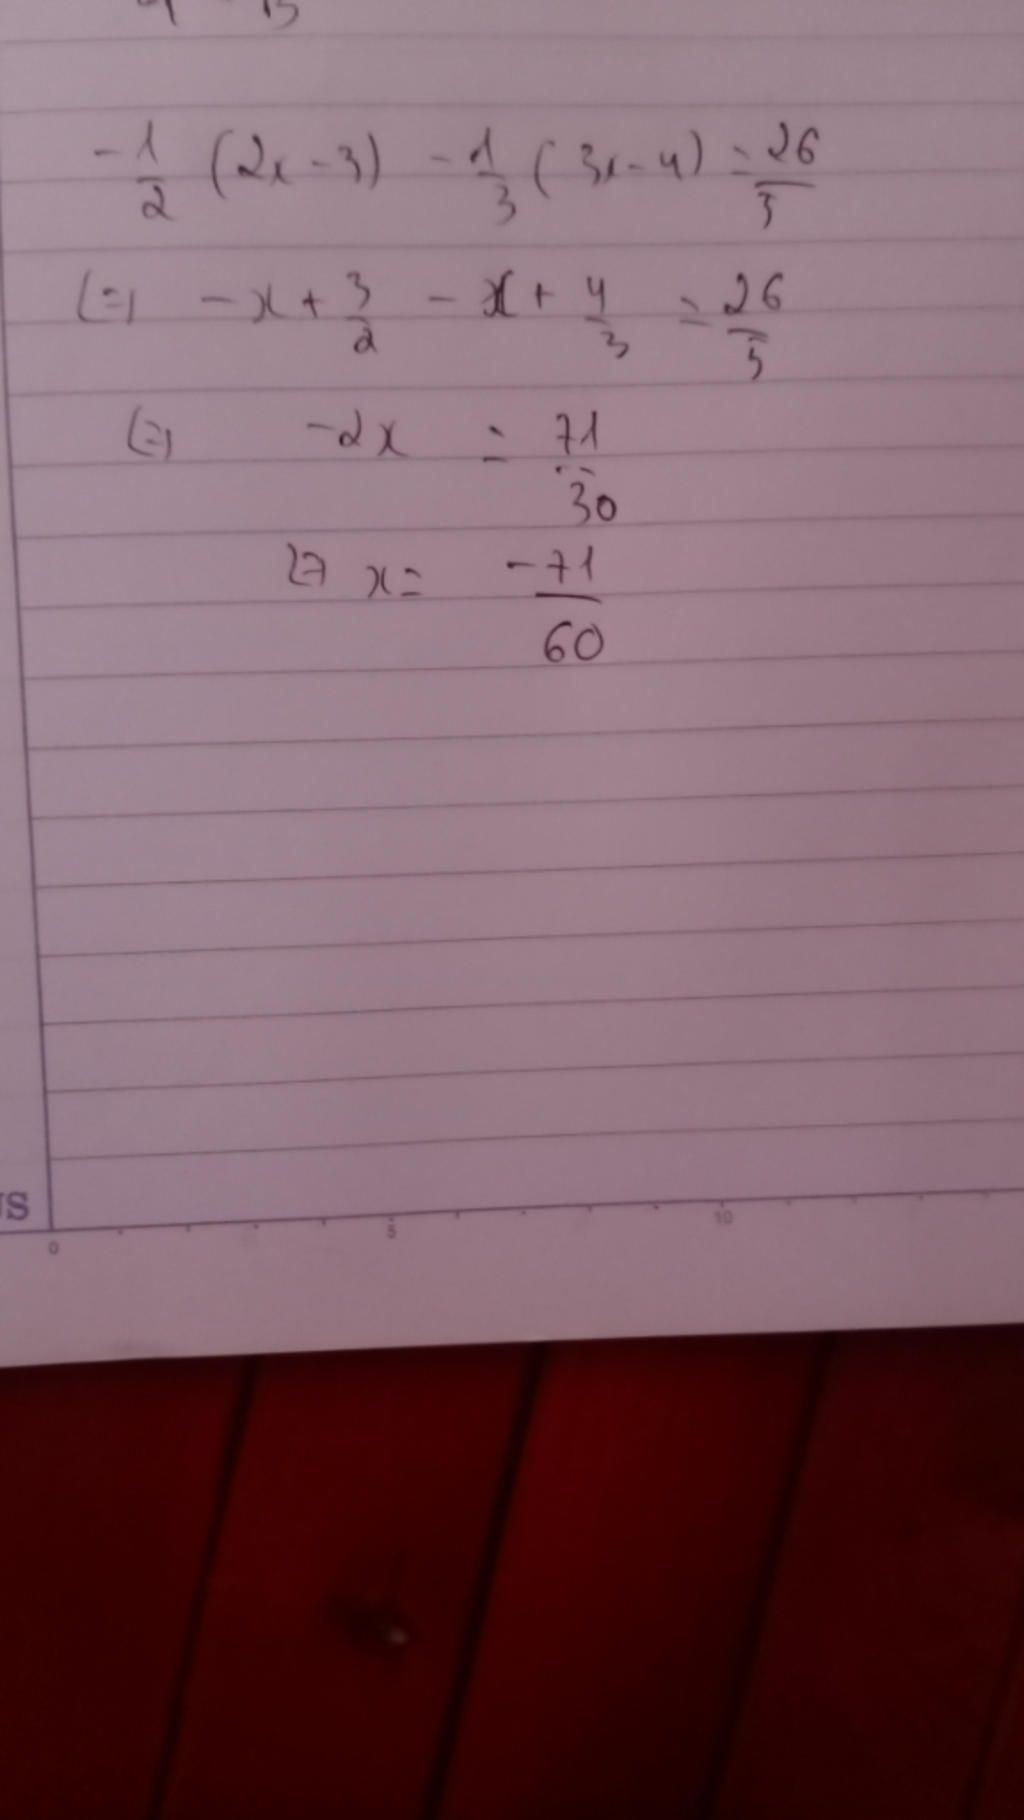 -1/2 (2x - 3) - 1/3 (3x - 4) = 26/5
(=) -x + 3/2 - x + 4/3 = 26/5
(=) -2x = 71/30
(=) x = -71/60
0 5 10